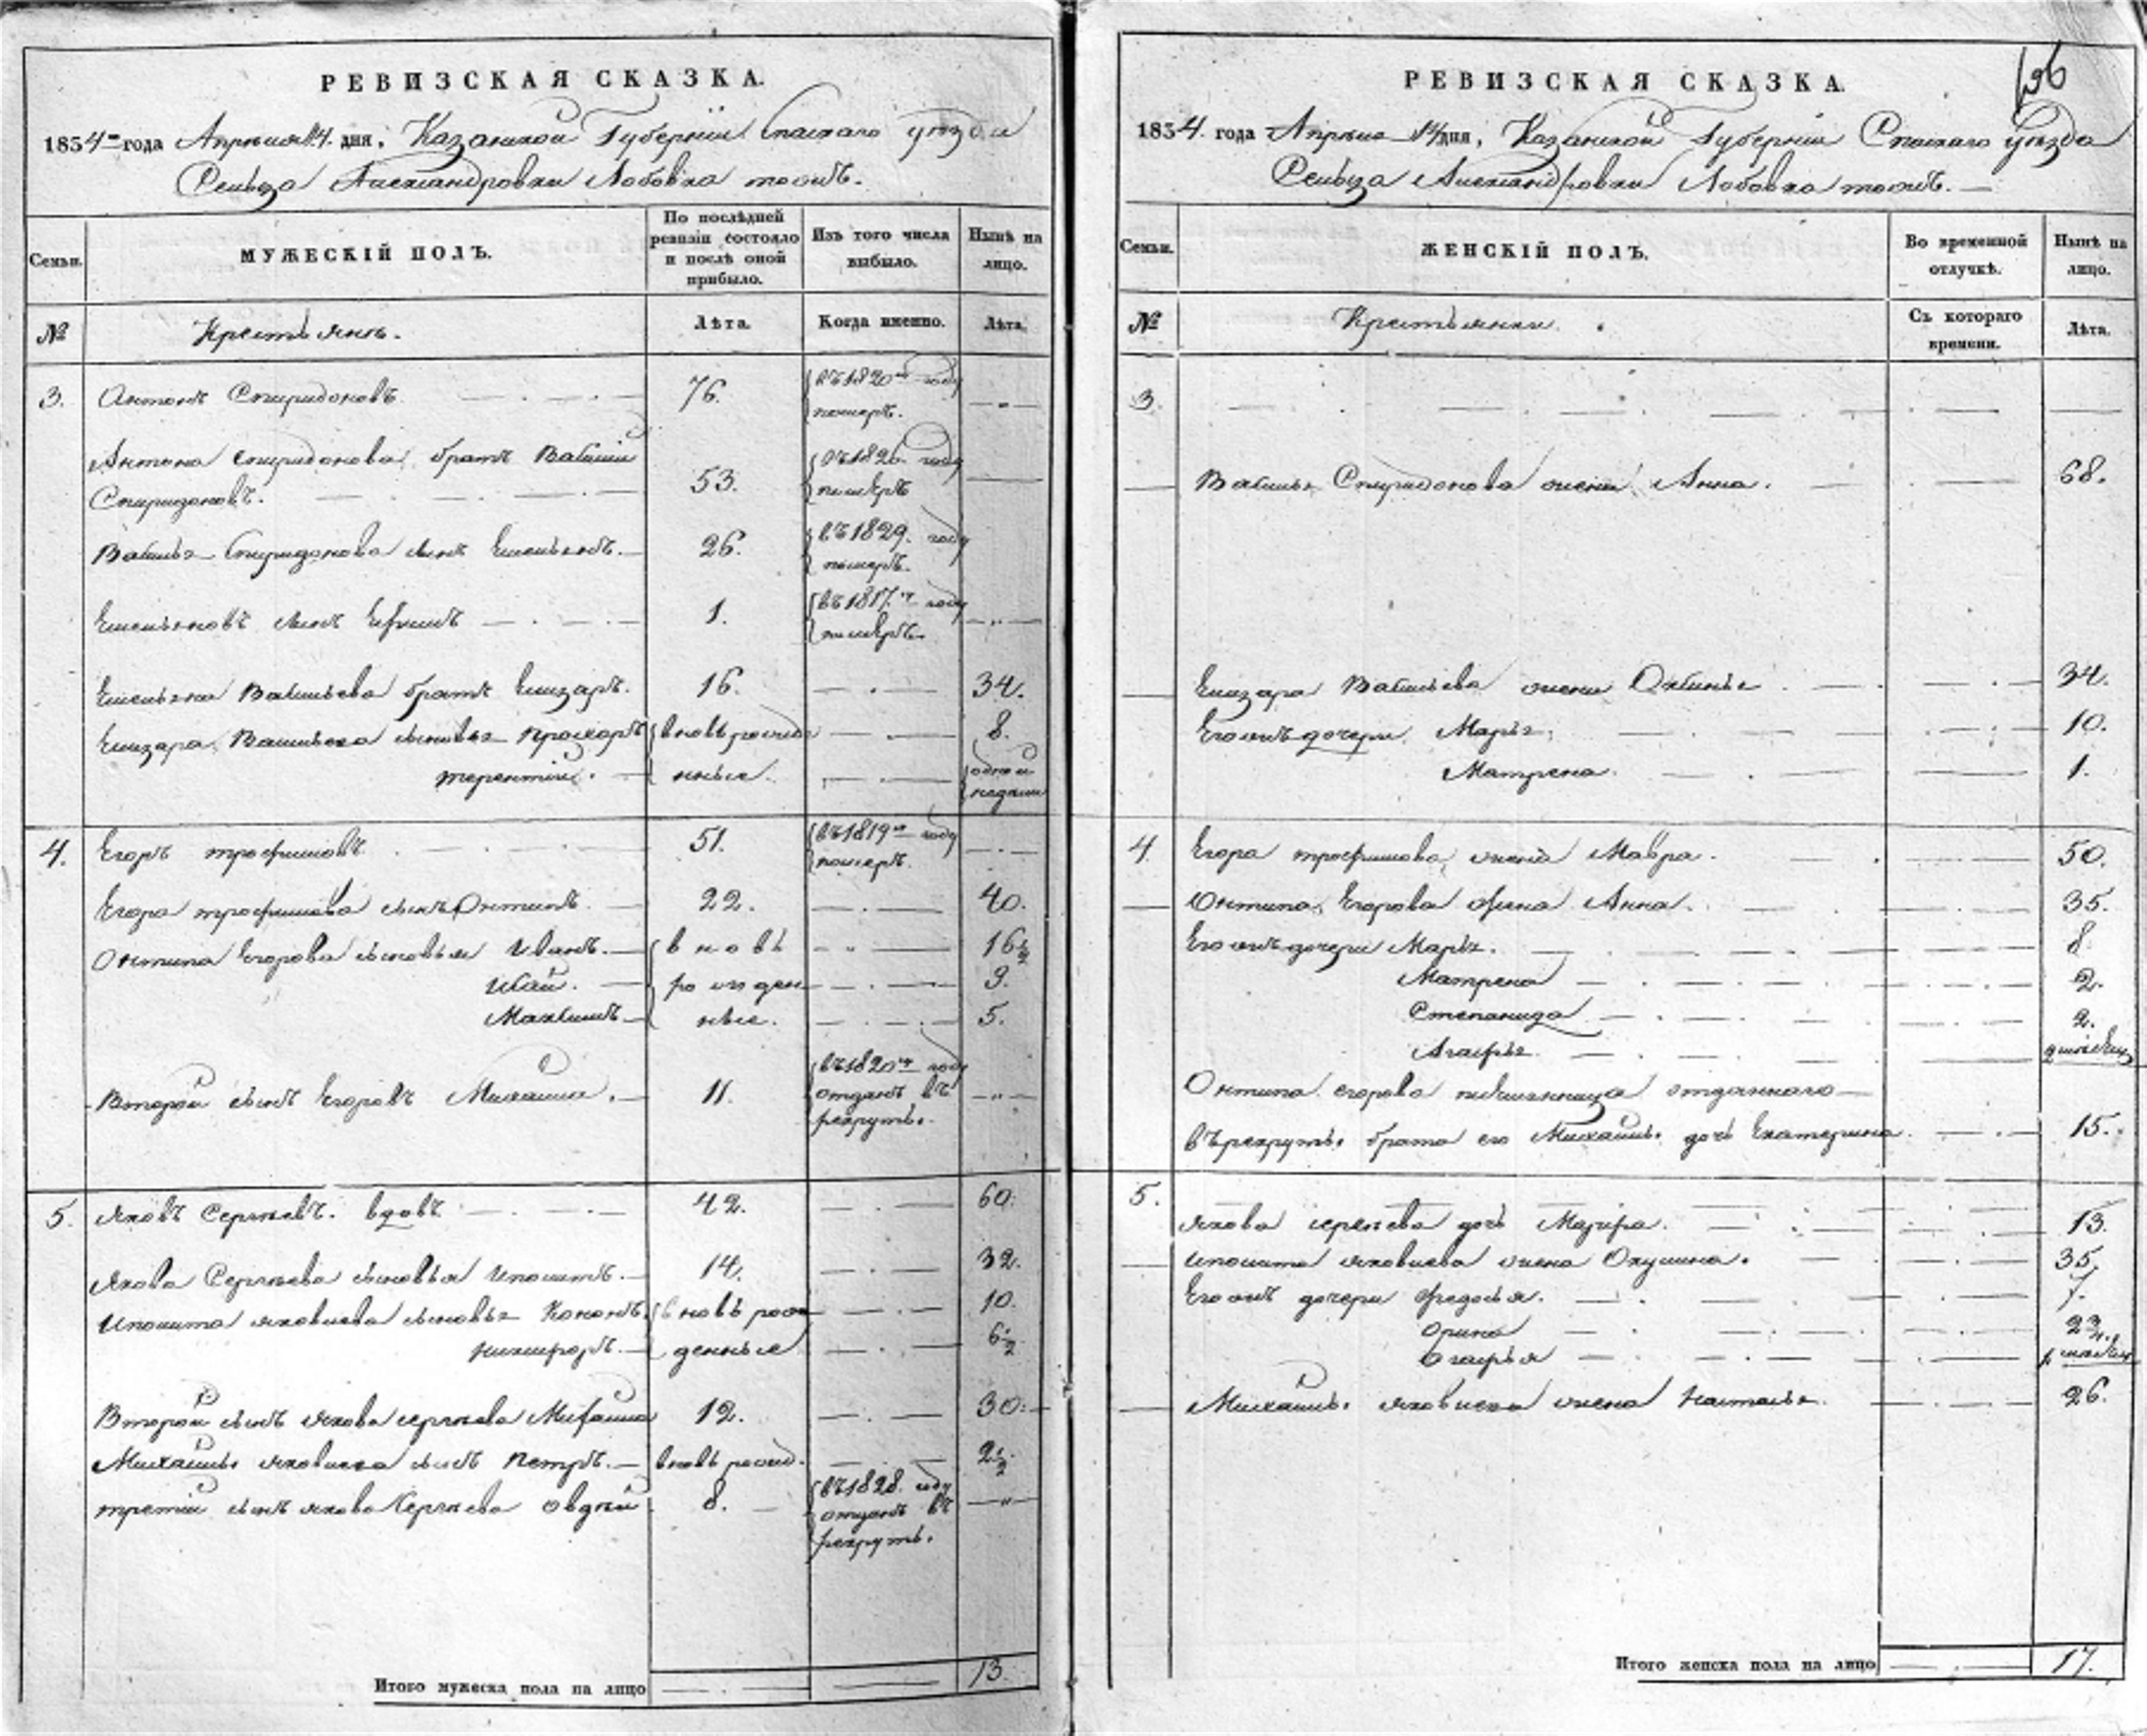 РЕВИЗСКАЯ СКАЗКА.
1834го года Апреля 14. дня, Казанской Губернии Спаскаго уезда
Сельца Александровки Лобовка тожъ.
Семьи.
МУЖЕСКІЙ ПОЛЪ.
По послѣдней ревизіи состояло и послѣ оной прибыло.
Изъ того числа выбыло.
Нынѣ на лицо.
№
Крестьянъ.
Лѣта.
Когда именно.
Лѣта.
3. Антонъ Спиридоновъ. 76. въ 1820м году померъ.
Антона Спиридонова братъ Василий
Спиридоновъ. 53. въ 1826 году померъ
Василья Спиридонова сынъ Емельянъ. 26. въ 1829. году померъ.
Емельяновъ сынъ Ефимъ 1. въ 1817м году померъ.
Емельяна Васильева братъ Елизаръ. 16. 34.
Елизара Васильева сыновья Прохоръ вновь рожде 8.
Терентий. нные. одной недели
4. Егоръ Трофимовъ 51. въ 1819м году померъ.
Егора Трофимова сынъ Онтипъ. 22. 40.
Онтипа Егорова сыновья Иванъ. вновь 16 1/2
Исай. рожден 9.
Максимъ ные. 5.
Второй сынъ Егоровъ Михайла. 11. въ 1820м году отданъ въ рекруты.
5. Яковъ Сергеевъ. вдовъ 42. 60.
Якова Сергеева сыновья Иполитъ. 14. 32.
Иполита Яковлева сыновья Кононъ. вновь рож 10.
Никифоръ. денные 6 1/2
Второй сынъ Якова Сергеева Михайла 12. 30.
Михайлы Яковлева сынъ Петръ. вновь рожд. 2 1/2
третий сынъ Якова Сергеева Овдей 8. въ 1828. году отданъ въ рекруты.
Итого мужеска пола на лицо 13.
РЕВИЗСКАЯ СКАЗКА.
1834. года Апреля 14 дня, Казанской Губернии Спаскаго уезда
Сельца Александровки Лобовка тожъ.
Семьи.
ЖЕНСКІЙ ПОЛЪ.
Во временной отлучкѣ.
Нынѣ на лицо.
№
Крестьянки.
Съ котораго времени.
Лѣта.
3.
Василья Спиридонова жена Анна. 68.
Елизара Васильева жена Овинья 34.
Его жъ дочери Марья 10.
Матрена. 1.
4. Егора Трофимова жена Мавра. 50.
Онтипа Егорова жена Анна. 35.
Его жъ дочери Марья. 8
Матрена 2.
Степанида 2.
Агафья
Онтипа Егорова племянница отданного
въ рекруты брата его Михайлы дочь Екатерина 15.
5.
Якова Сергеева дочь Марфа. 13.
Иполита Яковлева жена Окулина. 35.
Его жъ дочери Федосья. 7.
Орина 2 3/4.
Огафья
Михайлы Яковлева жена Наталья 26.
Итого женска пола на лицо 17.